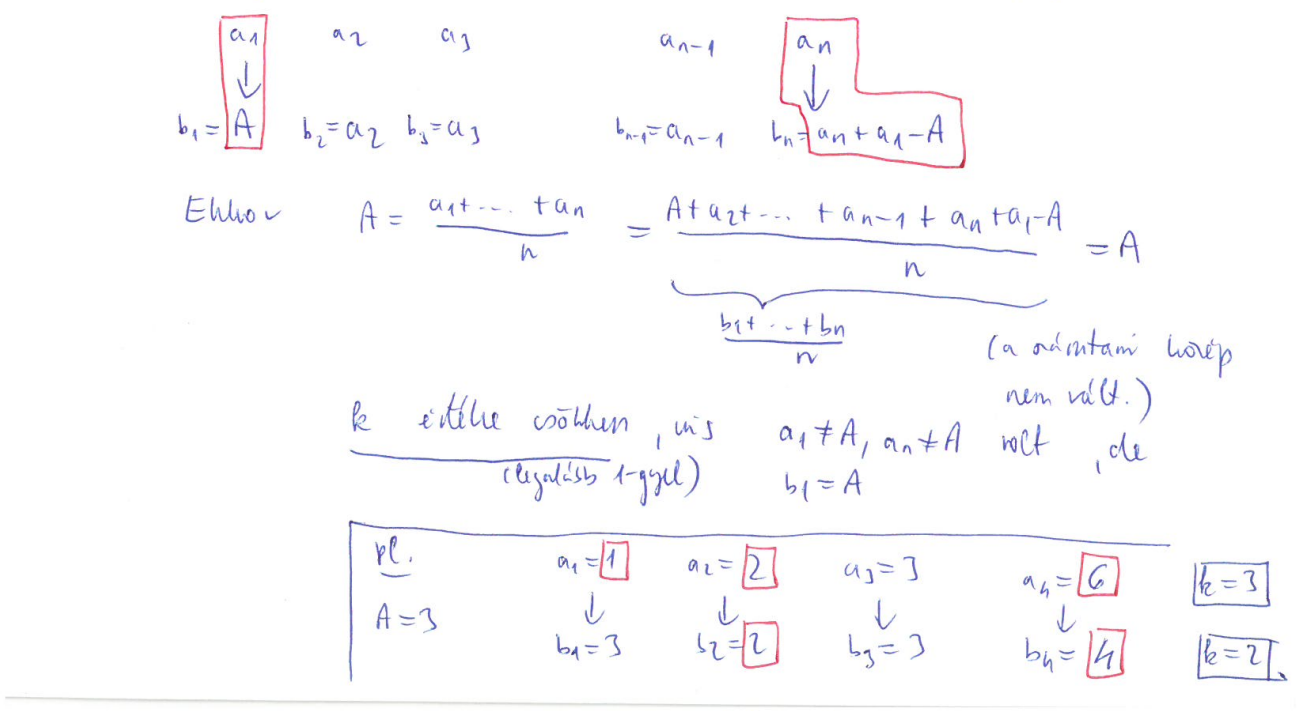 a₁ a₂ a₃ aₙ₋₁ aₙ
↓ ↓
b₁ = A b₂ = a₂ b₃ = a₃ bₙ₋₁ = aₙ₋₁ bₙ = aₙ + a₁ - A
Ekkor A = (a₁ + ... + aₙ)/n = (A + a₂ + ... + aₙ₋₁ + aₙ + a₁ - A)/n = A
(b₁ + ... + bₙ)/n
(a számtani közép
nem vált.)
k értéke csökken, mis a₁ ≠ A, aₙ ≠ A volt, de
(legalább 1-gyel) b₁ = A
pl. a₁ = 1 a₂ = 2 a₃ = 3 a₄ = 6 k = 3
A = 3 ↓ ↓ ↓ ↓
b₁ = 3 b₂ = 2 b₃ = 3 b₄ = 4 k = 2.